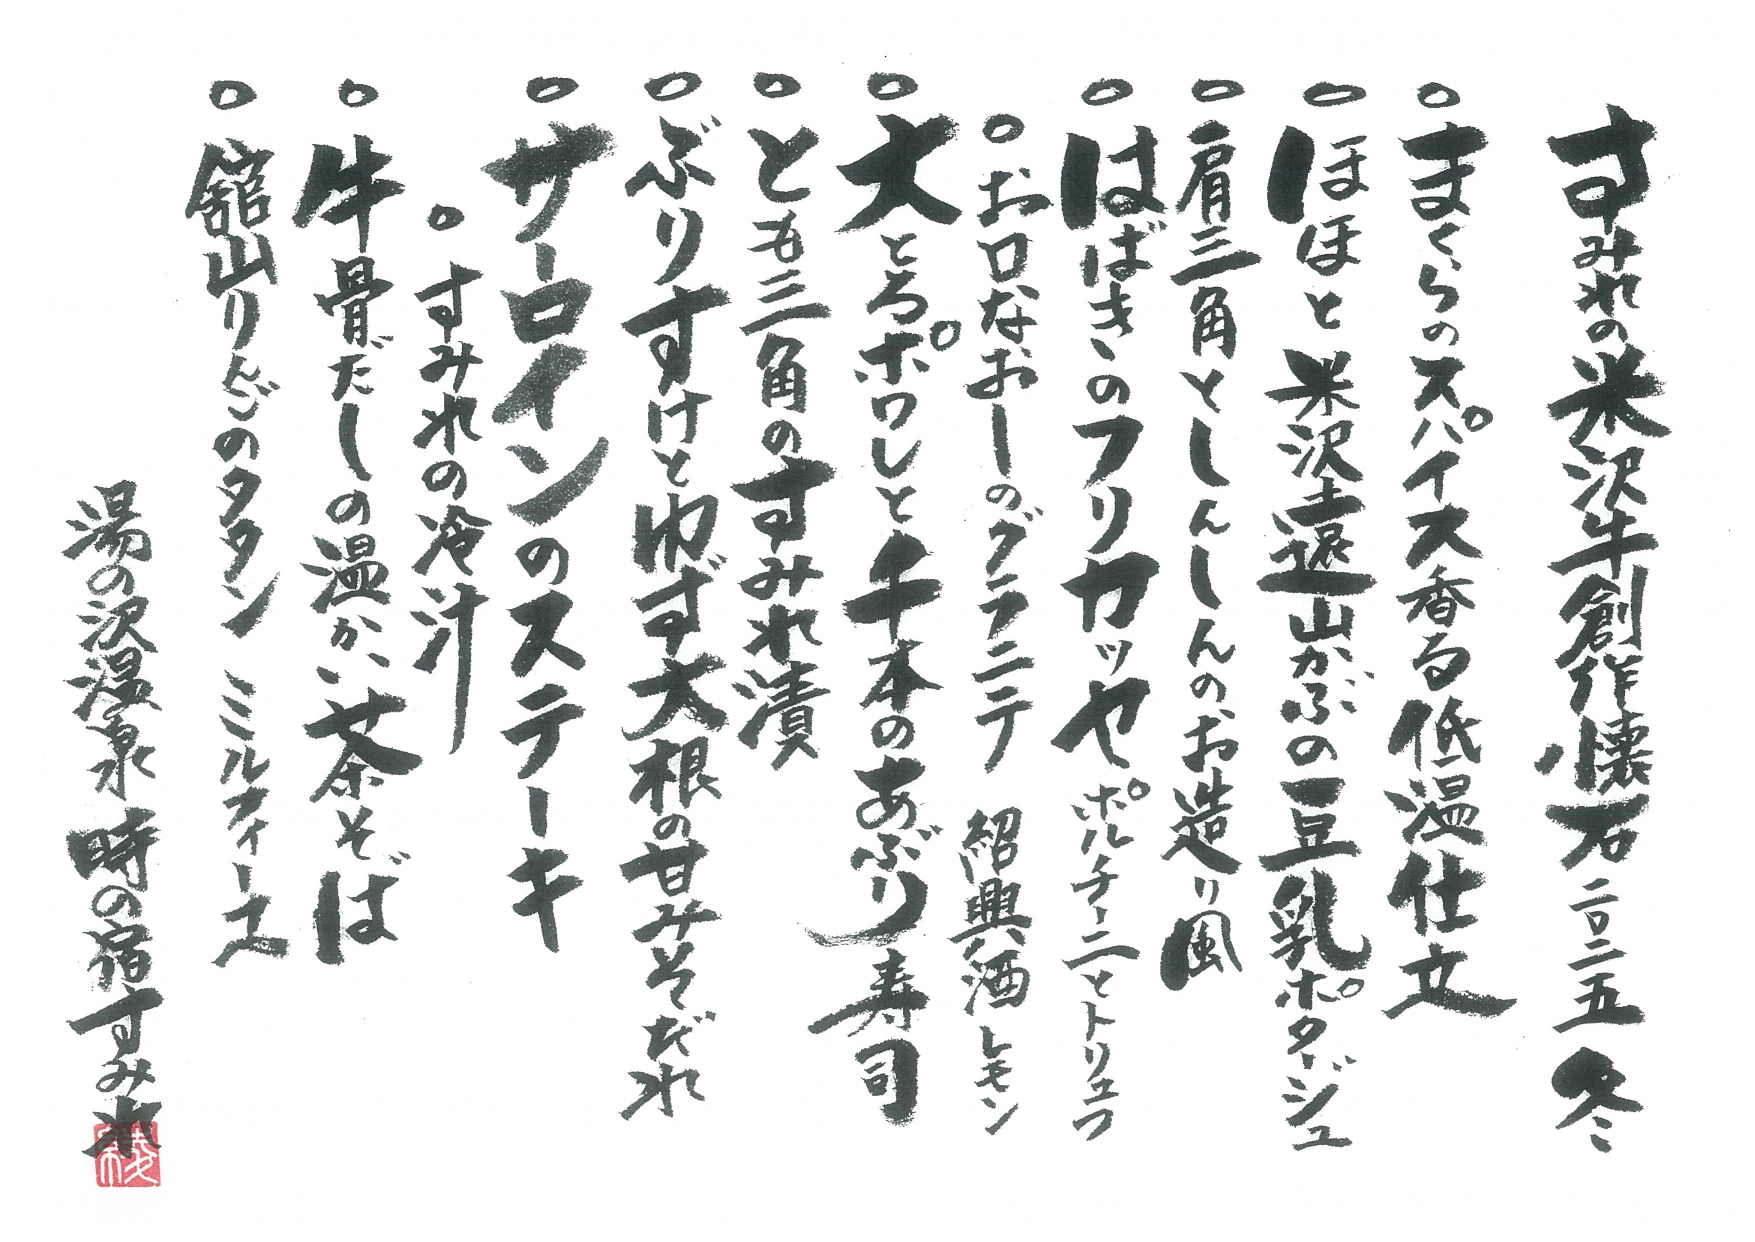 すみれの米沢牛創作懐石 二〇二五 冬
○まくらのスパイス香る低温仕立
○ほほと米沢遠山かぶの豆乳ポタージュ
○肩三角としんしんのお造り風
○はばきのフリカッセ ポルチーニとトリュフ
○お口なおしのグラニテ 紹興酒レモン
○大とろポワレと千本のあぶり寿司
○とも三角のすみれ漬
○ぶりすけとゆず大根の甘みそだれ
○サーロインのステーキ
○すみれの冷汁
○牛骨だしの温かい茶そば
○舘山りんごのタタン ミルフィーユ
湯の沢温泉 時の宿すみれ